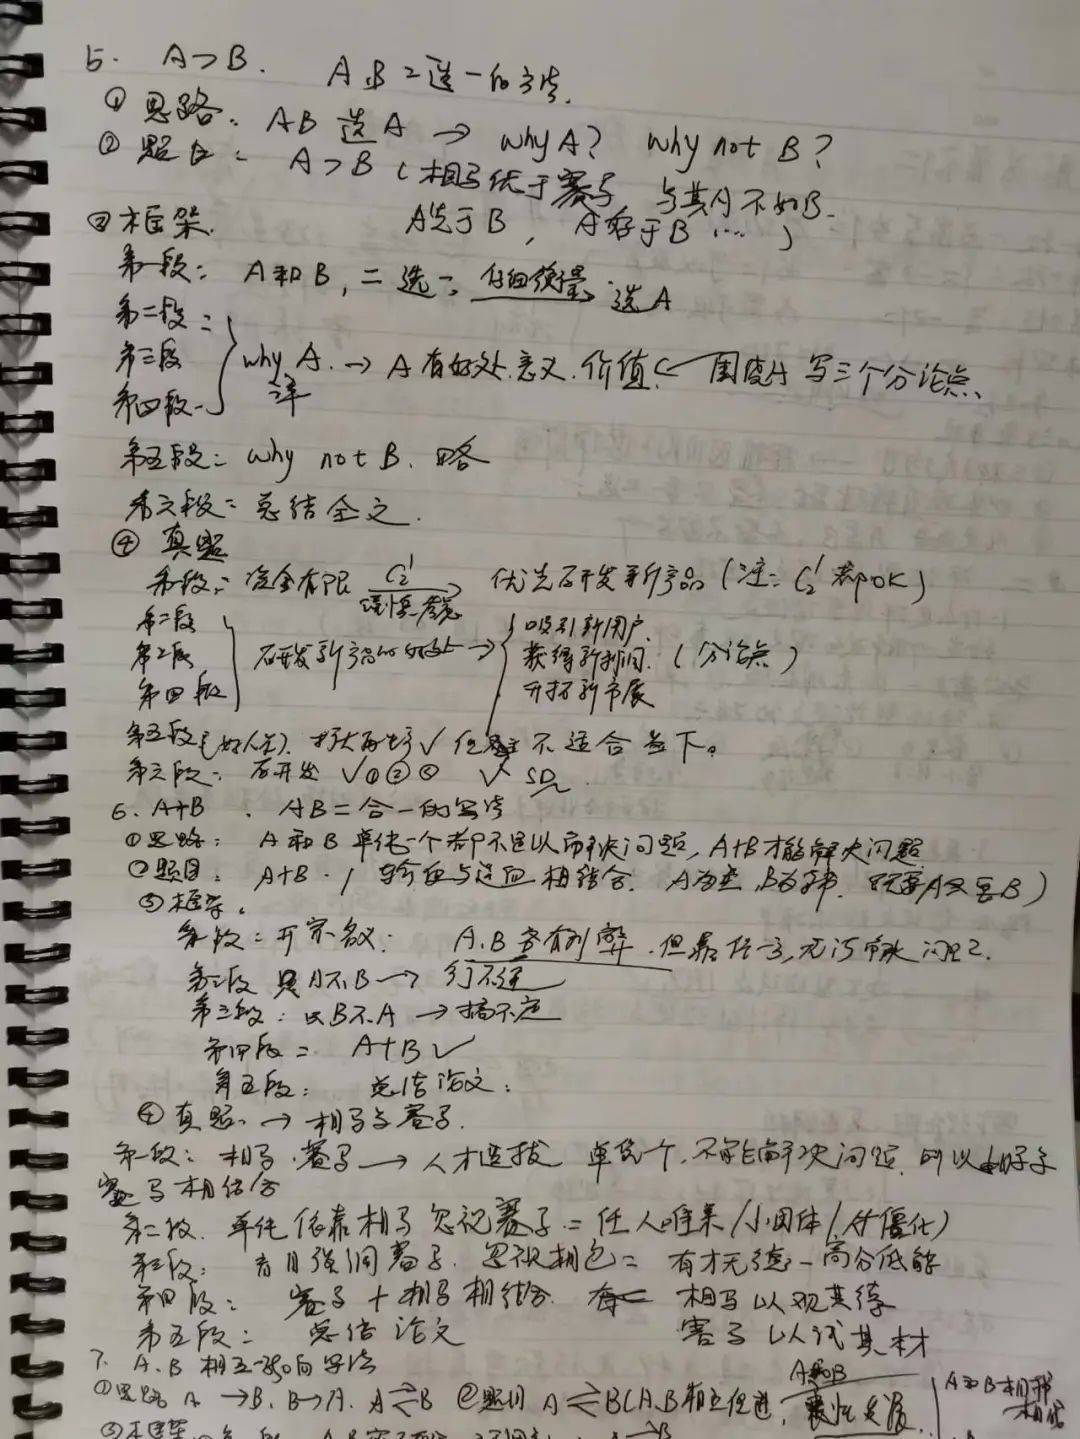 5. A>B. A、B二选一的写法.
① 思路: AB 选A → why A? why not B?
② 题目: A>B (相马优于赛马 与其A不如B.
A先于B, A好于B ···)
③ 框架.
第一段: A和B, 二选一, 仔细衡量, 选A
第二段:
第三段 why A. → A有好处.意义.价值. ← 围绕A写三个分论点、
第四段 详
第五段: why not B. 略
第六段: 总结全文.
④ 真题
第一段: 资金有限 C₂¹ 优先研发新产品 (注: C₂¹都OK)
第二段
第三段 研发新产品的好处 → 吸引新用户. 获得新利润. 开拓新市场 (分论点)
第四段
第五段 扩大 √ 但 不适合当下。
第六段: 研发 √ ①②③
6. A+B . AB二合一的写法
①思路: A和B单纯一个都不足以解决问题, A+B才能解决问题
②题目: A+B. ( 输血与造血相结合. A为 , B为 . 既要A又要B)
③框架.
第一段: 开宗名义: A.B各有利弊. 但靠任一方, 无法解决问题.
第二段 只A不B → 行不通
第三段: 只B不A → 搞不定
第四段: A+B √
第五段: 总结论文:
④ 真题. → 相马与赛马.
第一段: 相马.赛马 → 人才选拔 单凭一个, 不能解决问题. 所以 相马与
赛马相结合
第二段. 单纯依靠相马忽视赛马: 任人唯亲/小团体/ 僵化)
第三段: 盲目强调赛马. 忽视相马: 有才无德-高分低能
第四段: 赛马+相马相结合. 相马以观其德
第五段: 总结论文 赛马以试其材
7. A.B相互影响写法
①思路 A→B. B→A. A⇌B ②题目 A⇌B(A.B相互促进, A和B
A和B相辅相成
③框架